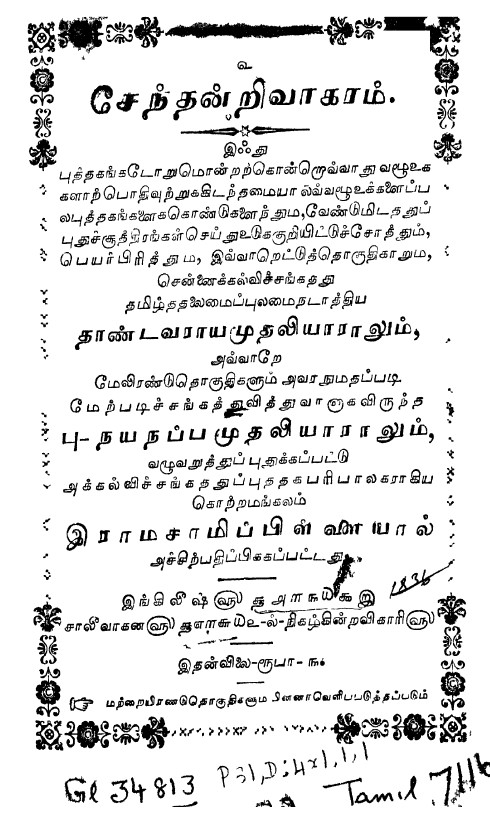 உ
சேந்தன்றிவாகரம்.
இஃது
புத்தகங்கடோறுமொன்றற்கொன்றொவ்வாது வழூஉக
களாற்பொதிவுற்றுக்கிடந்தமையால்வ்வழூஉக்களைப்ப
லபுத்தகங்களைக்கொண்டுகளைந்தும், வேண்டுமிடத்துப்
புதுச்சூத்திரங்கள்செய்துஉடுக்குறியிட்டுச்சேர்த்தும்,
பெயர்பிரித்தும், இவ்வாறெட்டுத்தொகுதிகாறும்,
சென்னைக்கல்விச்சங்கத்து
தமிழ்த்தலைமைப்புலமைநடாத்திய
தாண்டவராயமுதலியாராலும்,
அவ்வாறே
மேலிரண்டுதொகுதிகளும் அவரநுமதப்படி
மேற்படிச்சங்கத்துவித்துவானாகவிருந்த
பு-நயநப்பமுதலியாராலும்,
வழுவறுத்துப்புதுக்கப்பட்டு
அக்கல்விச்சங்கத்துப்புத்தகபரிபாலகராகிய
கொற்றமங்கலம்
இராமசாமிப்பிள்ளையால்
அச்சிற்பதிப்பிக்கப்பட்டது
இங்கிலீஷ் ௵
1836
சாலீவாகன௵ ௲௭௱௫௰௨-ல்-நிகழ்கின்றவிகாரி௵
இதன்விலை-ரூபா-௩.
மற்றையிரண்டுதொகுதிகளும் பின்னர்வெளிப்படுத்தப்படும்
Gl 34813 P31,D:4x1,1,1 Tamil 7116